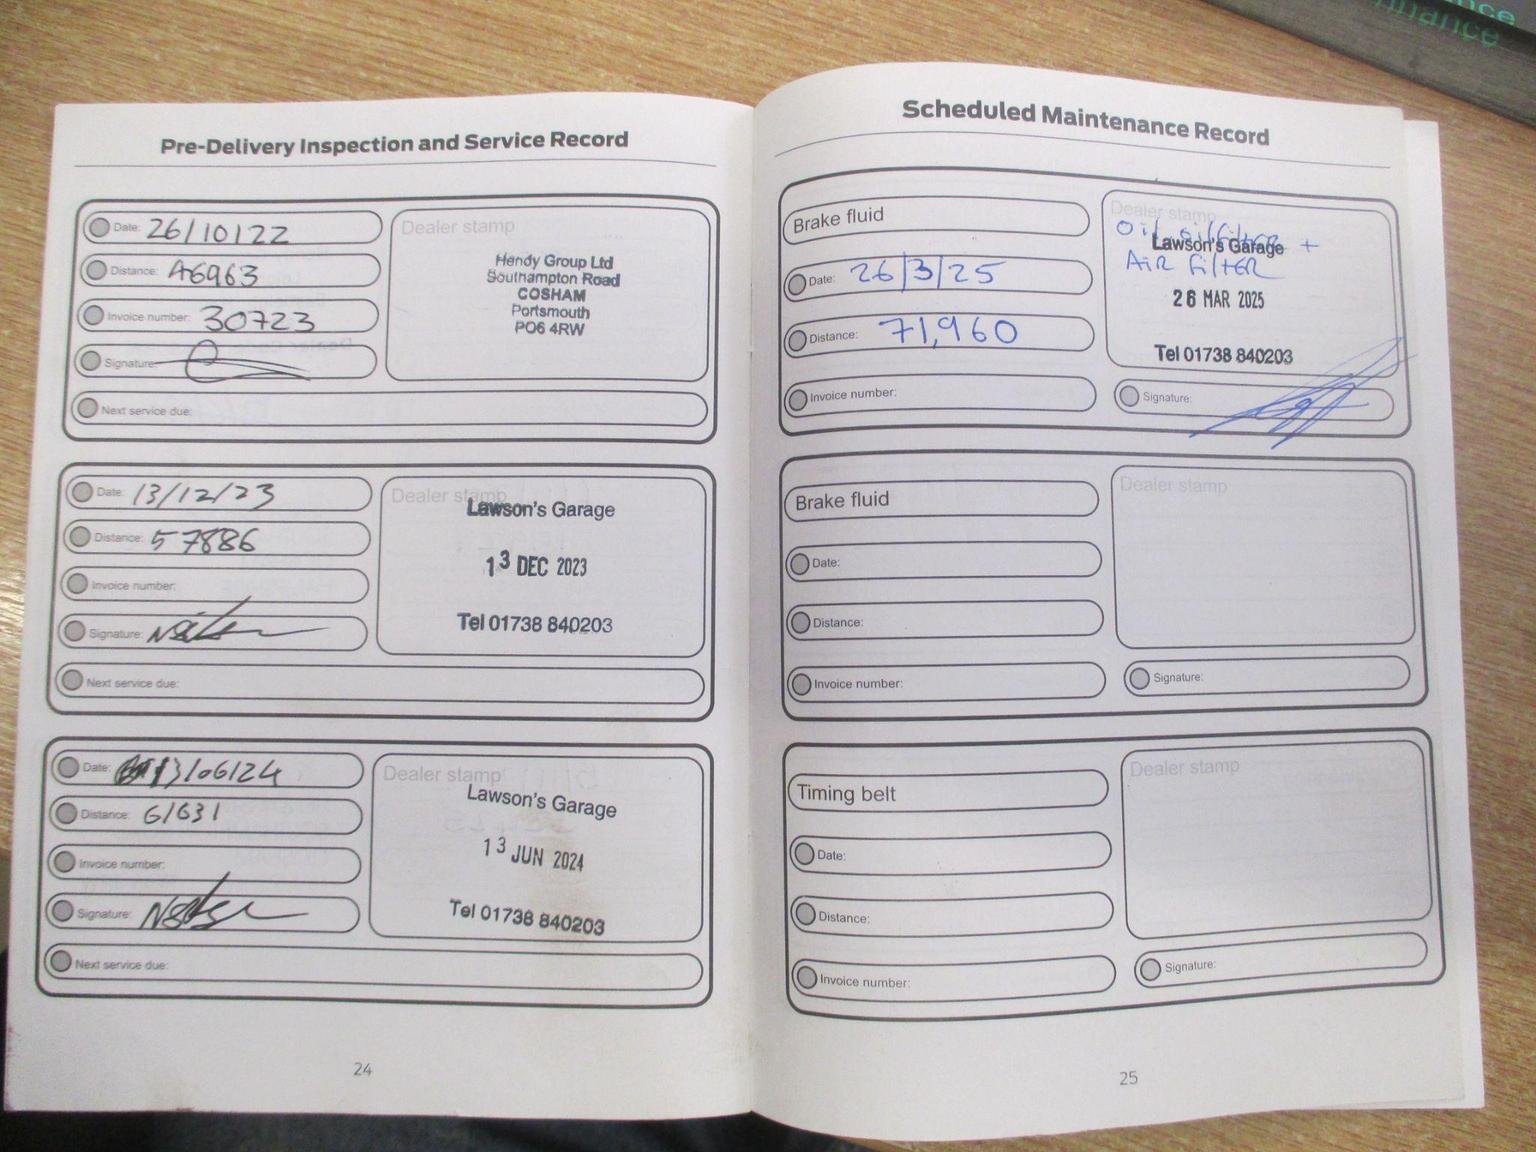 Pre-Delivery Inspection and Service Record
Date: 26/10/22
Distance: A6963
Invoice number: 30723
Signature:
Next service due:
Dealer stamp
Hendy Group Ltd
Southampton Road
COSHAM
Portsmouth
PO6 4RW
Date: 13/12/23
Distance: 57886
Invoice number:
Signature:
Next service due:
Dealer stamp
Lawson's Garage
13 DEC 2023
Tel 01738 840203
Date: 13/06/24
Distance: 61631
Invoice number:
Signature:
Next service due:
Dealer stamp
Lawson's Garage
13 JUN 2024
Tel 01738 840203
24
Scheduled Maintenance Record
Brake fluid
Date: 26/3/25
Distance: 71,960
Invoice number:
Dealer stamp
Oil, oil filter +
Lawson's Garage
Air Filter
26 MAR 2025
Tel 01738 840203
Signature:
Brake fluid
Date:
Distance:
Invoice number:
Dealer stamp
Signature:
Timing belt
Date:
Distance:
Invoice number:
Dealer stamp
Signature:
25